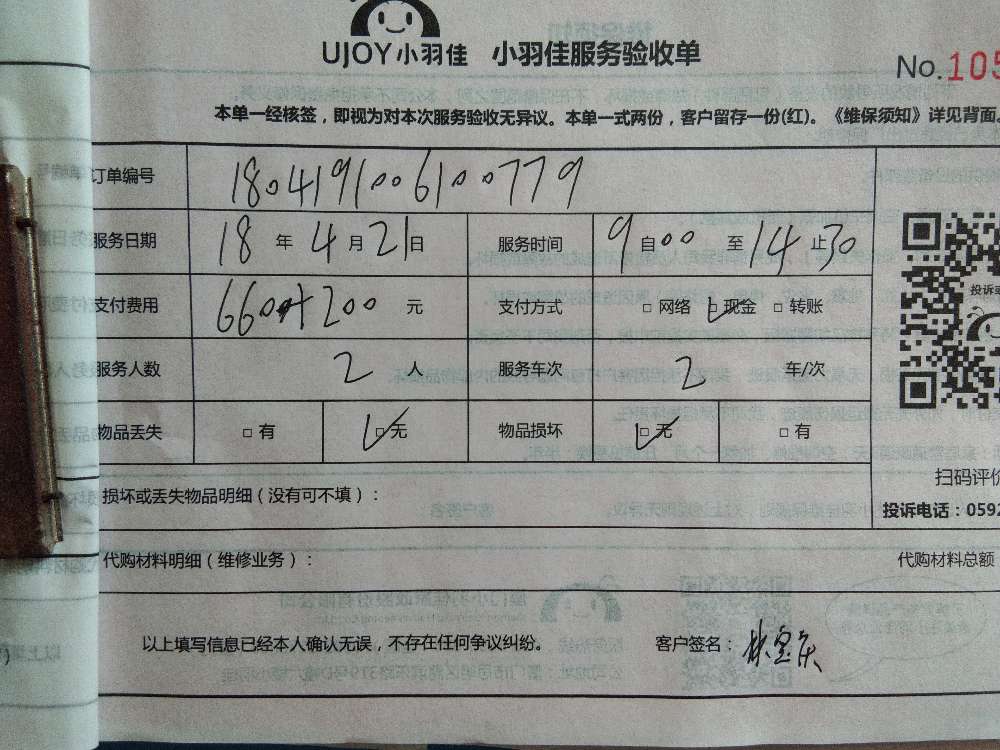 UJOY小羽佳 小羽佳服务验收单
No.105
本单一经核签，即视为对本次服务验收无异议。本单一式两份，客户留存一份(红)。《维保须知》详见背面。
订单编号 1804191006100779
服务日期 18 年 4 月 21 日 服务时间 9 自 00 至 14 止 30
支付费用 660+200 元 支付方式 □ 网络 ☑ 现金 □ 转账
投诉或
服务人数 2 人 服务车次 2 车/次
物品丢失 □ 有 ☑ 无 物品损坏 ☑ 无 □ 有
扫码评价
损坏或丢失物品明细（没有可不填）：
投诉电话：0592
代购材料明细（维修业务）： 代购材料总额
以上填写信息已经本人确认无误，不存在任何争议纠纷。 客户签名：